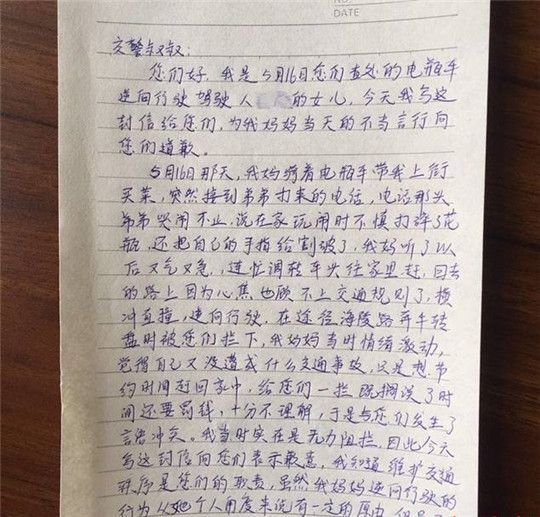 NO.
DATE
交警叔叔:
您们好,我是5月16日您们查处的电瓶车
逆向行驶驾驶人 的女儿,今天我写这
封信给您们,为我妈妈当天的不当言行向
您们道歉。
5月16日那天,我妈骑着电瓶车带我上街
买菜,突然接到弟弟打来的电话,电话那头
弟弟哭闹不止,说在家玩闹时不慎打碎了花
瓶,还把自己的手指给割破了,我妈听了以
后又气又急,连忙调转车头往家里赶,回去
的路上因为心焦也顾不上交通规则了,横
冲直撞,逆向行驶,在途径海陵路弃车转
盘时被您们拦下,我妈妈当时情绪激动,
觉得自己又没造成什么交通事故,只是想节
约时间赶回家中,给您们一拦既搁误了时
间还要罚钱,十分不理解,于是与您们发生了
言语冲突。我当时实在是无力阻拦,因此今天
写这封信向您们表示歉意,我知道维护交通
秩序是您们的职责,虽然我妈妈逆向行驶的
行为从她个人角度来说有一定的原由,但是